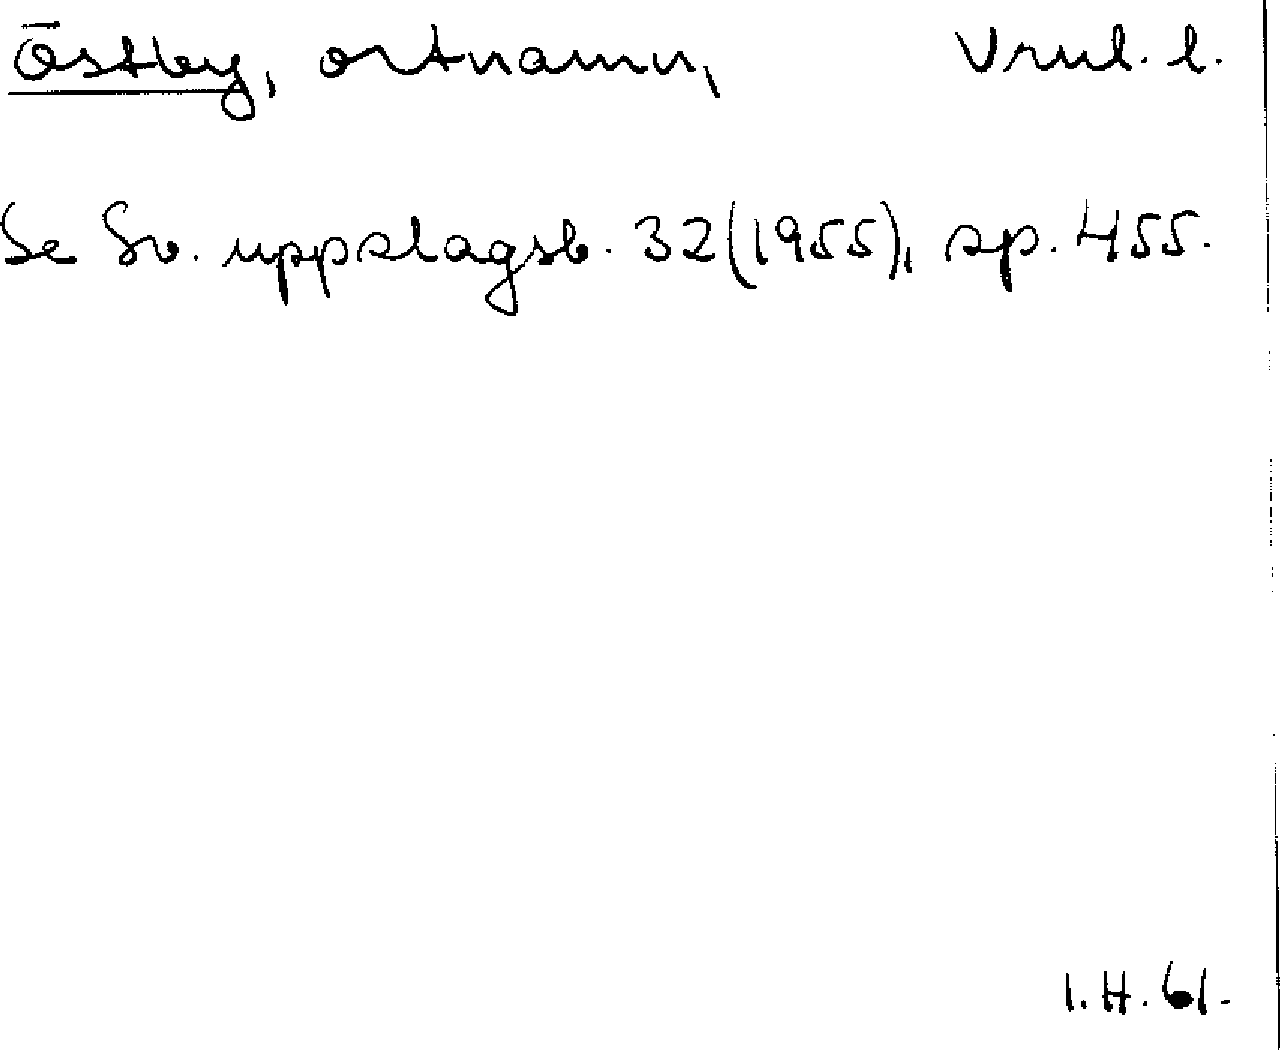 Östby, ortnamn, Vrml. l.
Se Sv. uppslagsb. 32(1955), sp. 455.
I.H. 61.